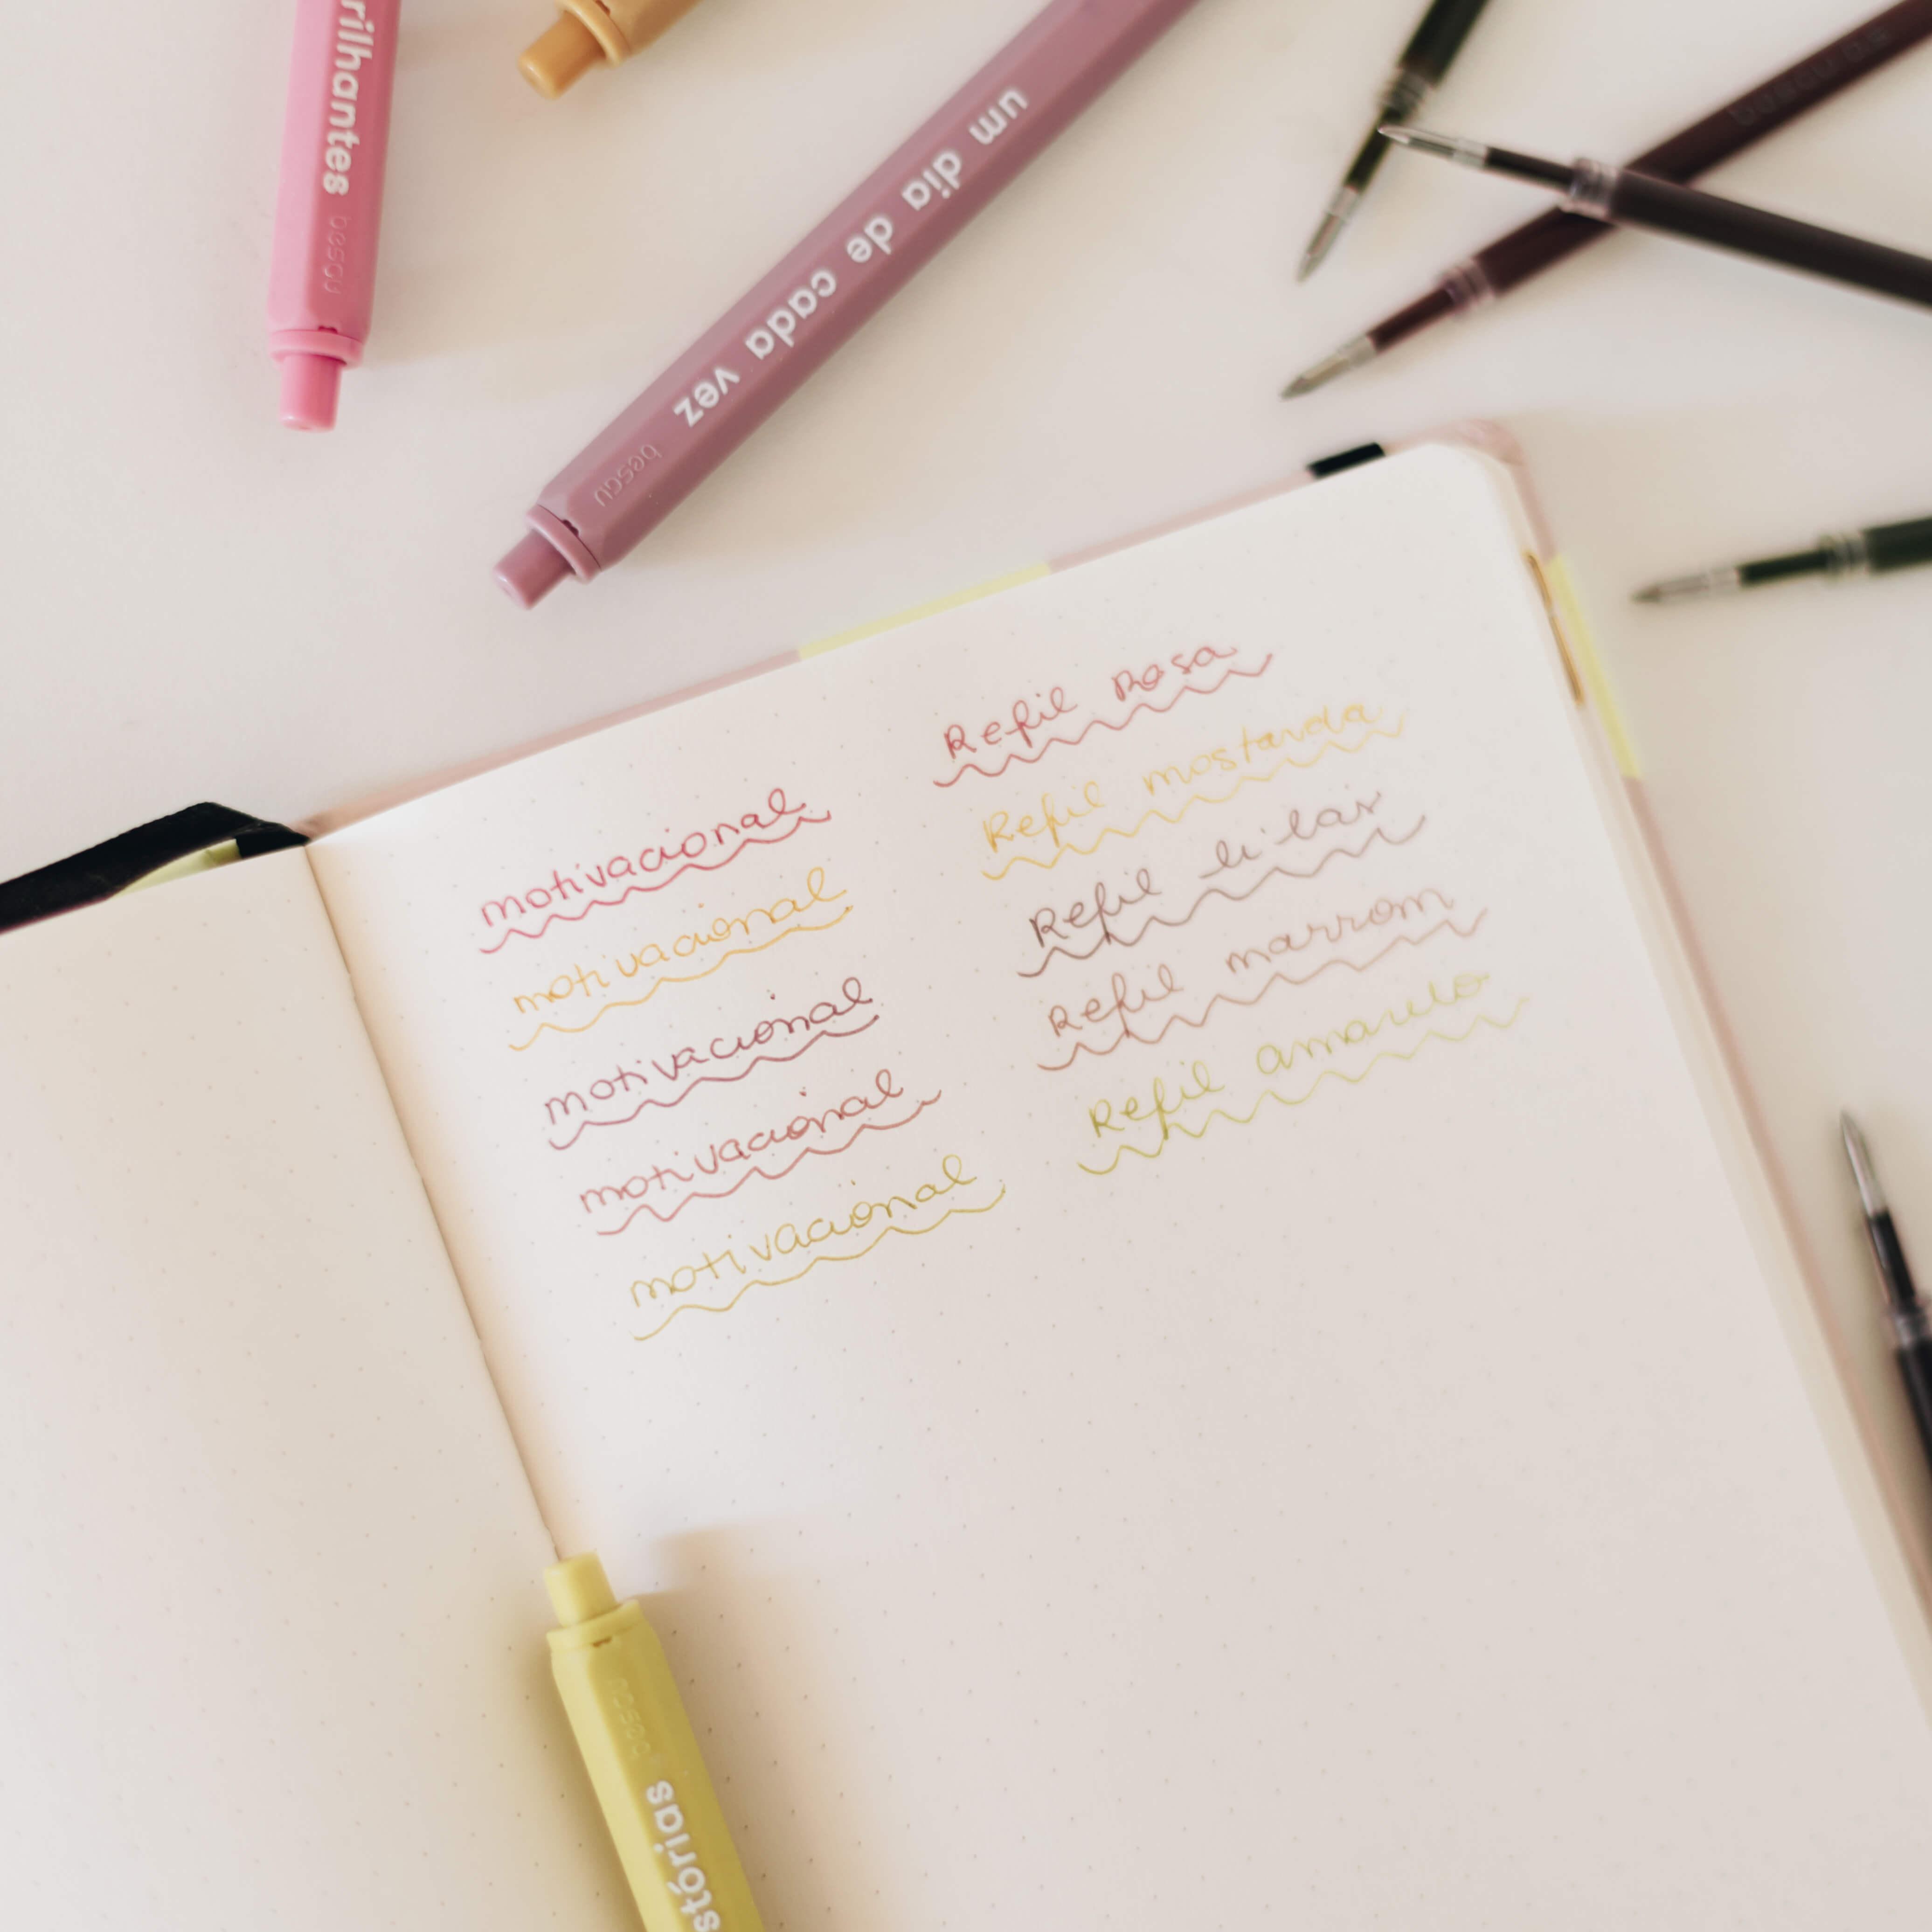 rilhantes
um dia de cada vez
motivacional
motivacional
motivacional
motivacional
motivacional
Refil Rosa
Refil mostarda
Refil lilás
Refil marrom
Refil amarelo
stórias